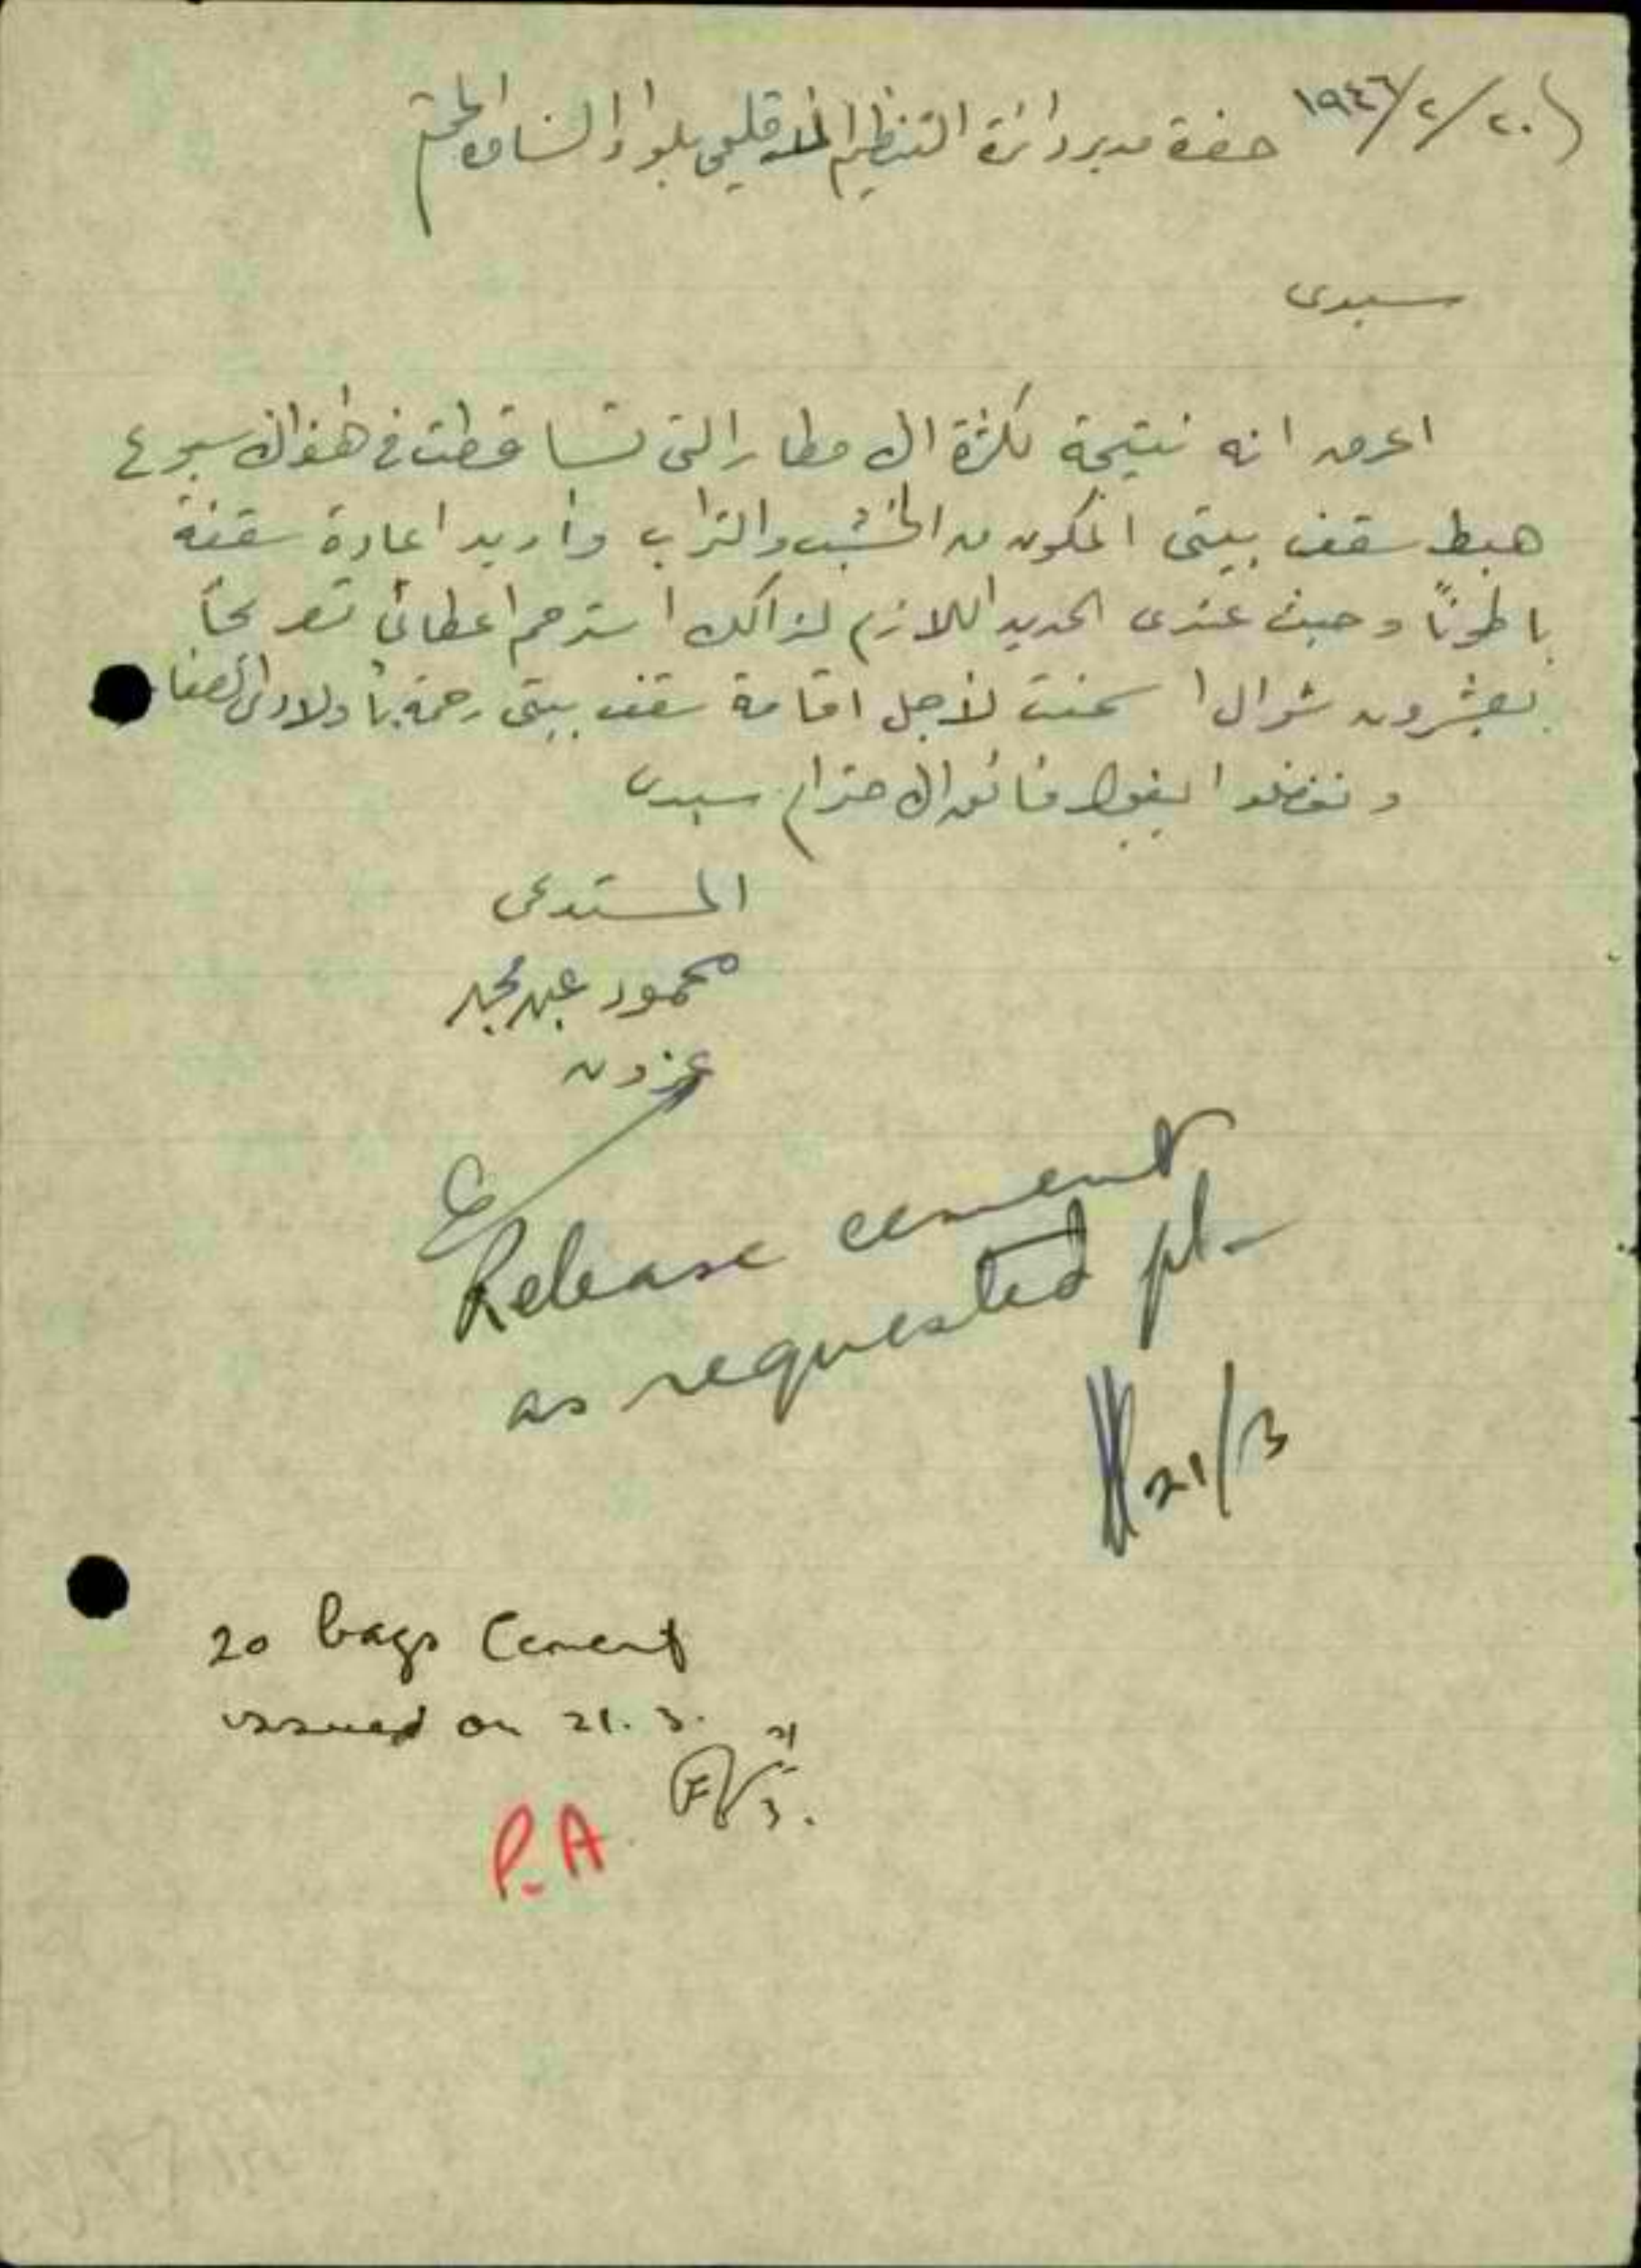 ٢٠/٢/١٩٤٦
حضرة مدير دائرة التنظيم الاقليمي بلواء السامرة المحترم
سيدي
اعرض انه نتيجة لكثرة الامطار التي تساقطت في هذا الاسبوع
هبط سقف بيتي المكون من الخشب والتراب وأريد اعادة سقفة
باطوناً وحيث عندي الحديد اللازم لذالك استرحم اعطائي تصريحاً
بعشرون شوالا سمنت لأجل اقامة سقف بيتي رحمة بأولادي الصغار
وتفضلوا بقبول فائق الاحترام سيدي
المستدعي
محمود عبد
عزون
Release cement
as requested pl-
21/3
20 bags Cement
issued on 21. 3.
21
3.
P.A